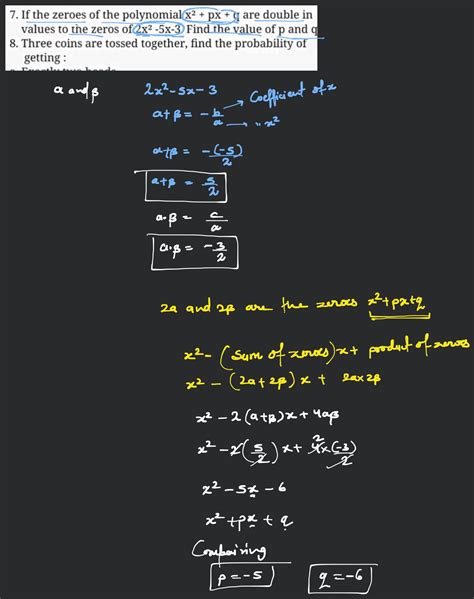 7. If the zeroes of the polynomial x² + px + q are double in
values to the zeros of 2x² -5x-3 Find the value of p and q
8. Three coins are tossed together, find the probability of
getting :
α and β
2x²-5x-3
α+β = -b/a → Coefficient of x
→ " x²
α+β = -(-5)/2
α+β = 5/2
α·β = c/a
α·β = -3/2
2α and 2β are the zeroes x²+px+q
x² - (sum of zeroes)x + product of zeroes
x² - (2α+2β)x + 2α×2β
x² - 2(α+β)x + 4αβ
x² - 2(5/2)x + 4²×(-3)/2
x² - 5x - 6
x² + px + q
Comparing
p = -5
q = -6